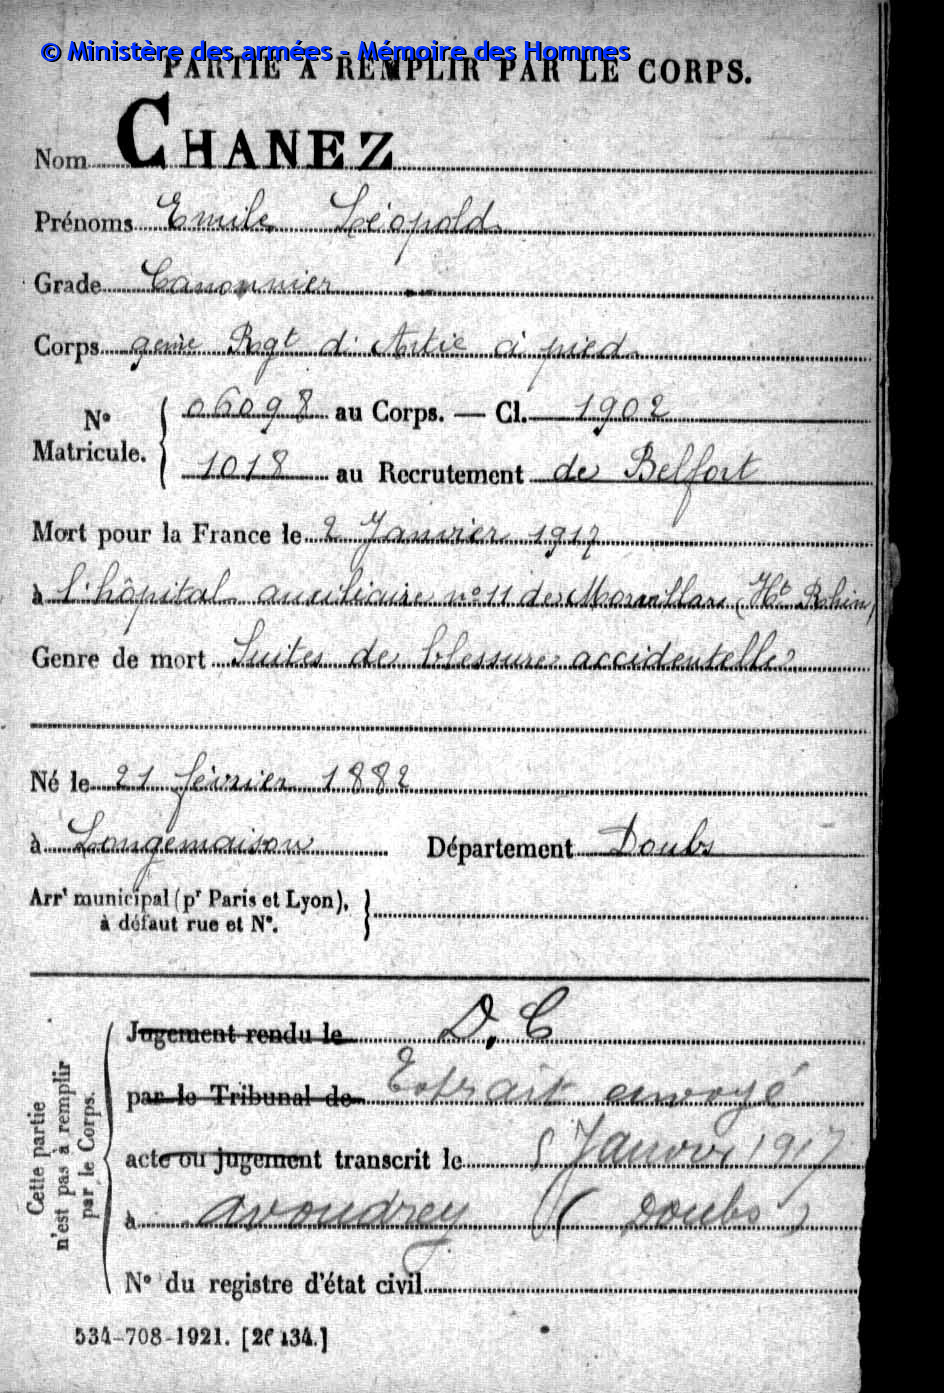 © Ministère des armées - Mémoire des Hommes
PARTIE À REMPLIR PAR LE CORPS.
Nom CHANEZ
Prénoms Emile Léopold
Grade Canonnier
Corps 9eme Rgt d'Artie à pied
N° Matricule. 06098 au Corps. — Cl. 1902
1018 au Recrutement de Belfort
Mort pour la France le 2 Janvier 1917
à l'hôpital auxiliaire n° 11 de Morvillars (Ht Rhin)
Genre de mort Suites de blessure accidentelle
Né le 21 février 1882
à Longemaison Département Doubs
Arrt municipal (pr Paris et Lyon),
à défaut rue et N°.
Cette partie n'est pas à remplir par le Corps.
Jugement rendu le D.C
par le Tribunal de Extrait envoyé
acte ou jugement transcrit le 5 Janvr 1917
à avoudrey (Doubs)
N° du registre d'état civil
534-708-1921. [26434.]